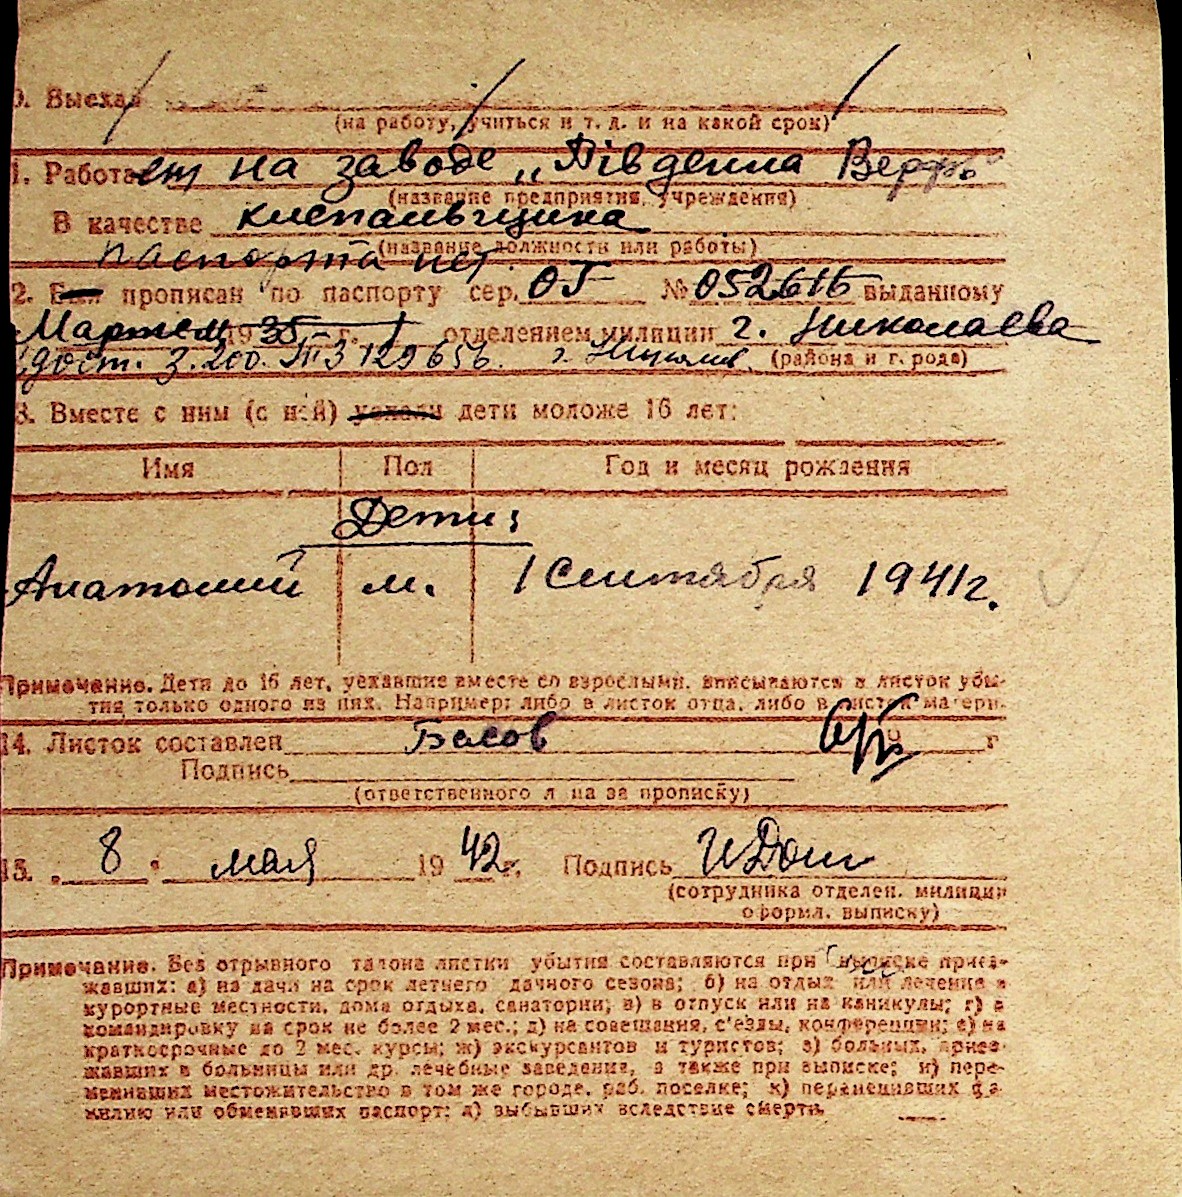 0. Выехал
(на работу, учиться и т. д. и на какой срок)
1. Работает на заводе „Південна Верфь“
(название предприятия, учреждения)
В качестве
(название должности или работы)
паспорта нет.
2. Был прописан по паспорту сер. ОГ № выданному
19 35 г. отделением милиции г. Николаева
г. Николаев. (района и города)
3. Вместе с ним (с ней) уехали дети моложе 16 лет:
Имя Пол Год и месяц рождения
Дети:
Анатолий м. 1 Сентября 1941 г.
Примечание. Дети до 16 лет, уехавшие вместе со взрослыми, вписываются в листок убы-
тия только одного из них. Например: либо в листок отца, либо в листок матери.
14. Листок составлен Белов г
Подпись
(ответственного лица за прописку)
15. „ 8 “ мая 19 42 г. Подпись
(сотрудника отделен. милиции
оформл. выписку)
Примечание. Без отрывного талона листки убытия составляются при выписке приез-
жавших: а) на дачи на срок летнего дачного сезона; б) на отдых или лечение в
курортные местности, дома отдыха, санатории; в) в отпуск или на каникулы; г) в
командировку на срок не более 2 мес.; д) на совещания, с'езды, конференции; е) на
краткосрочные до 2 мес. курсы; ж) экскурсантов и туристов; з) больных, приез-
жавших в больницы или др. лечебные заведения, а также при выписке; и) пере-
менивших местожительство в том же городе, раб. поселке; к) переменивших фа-
милию или обменявших паспорт; л) выбывших вследствие смерти.